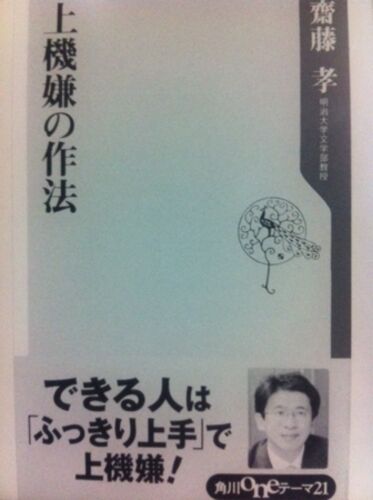 上機嫌の作法
齋藤 孝
明治大学文学部教授
できる人は
「ふっきり上手」で
上機嫌!
角川oneテーマ21